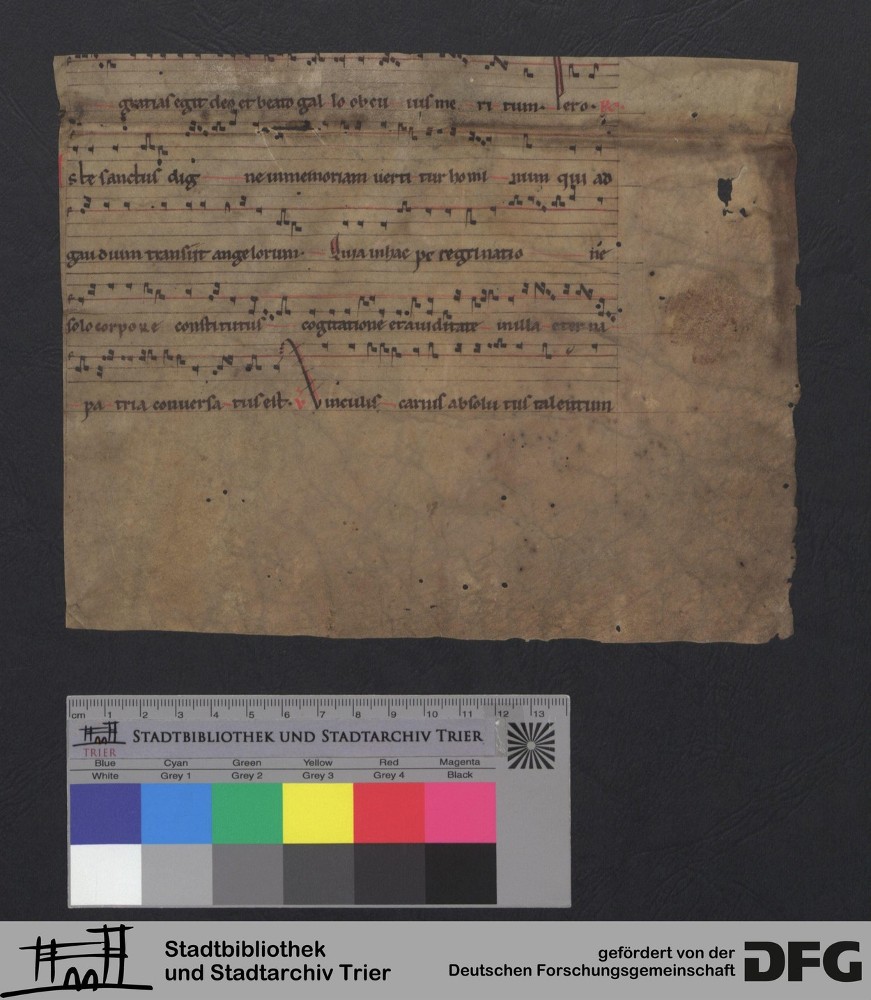 gratias egit deo et beato gal lo ob eu ius me ri tum. ero. Re.
ste sanctus dig ne in memoriam uerti tur homi num qui ad
gaudium transiit angelorum. Quia in hac pe regrinatio ne
solo corpore constitutus cogitatione et auiditate in illa eterna
pa tria conuersa tus est. V inculis carnis absolu tus talentum
cm 1 2 3 4 5 6 7 8 9 10 11 12 13
STADTBIBLIOTHEK UND STADTARCHIV TRIER
TRIER
Blue Cyan Green Yellow Red Magenta
White Grey 1 Grey 2 Grey 3 Grey 4 Black
Stadtbibliothek
und Stadtarchiv Trier
gefördert von der
Deutschen Forschungsgemeinschaft
DFG